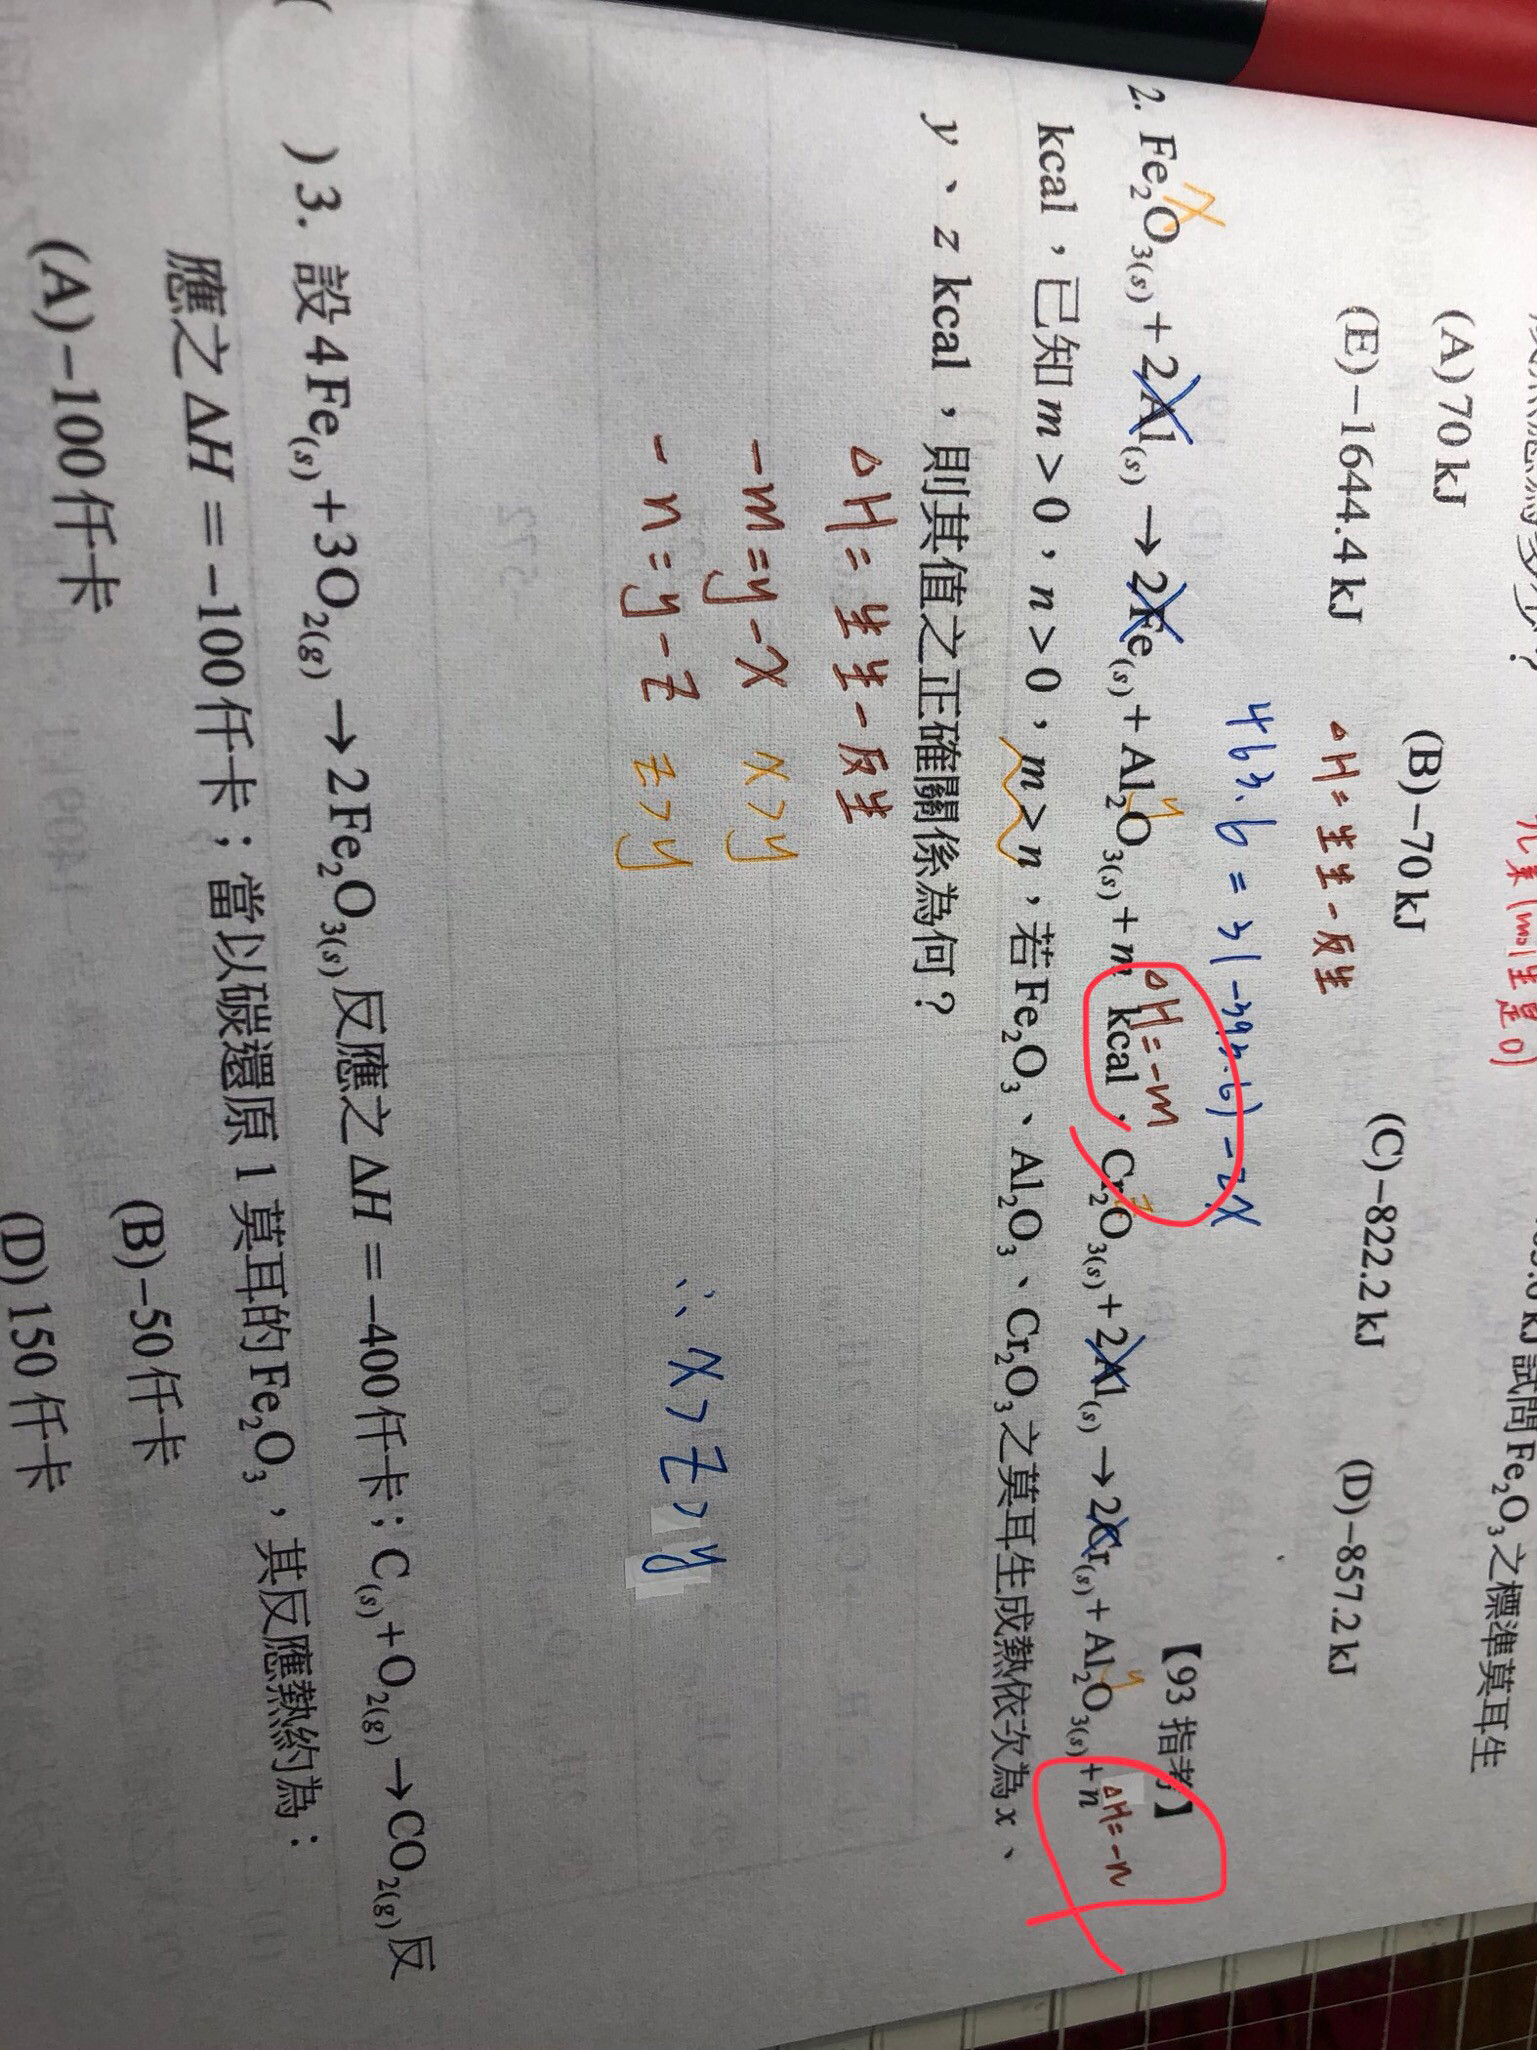 (A) 70 kJ
(B) −70 kJ
(C) −822.2 kJ
(D) −857.2 kJ
(E) −1644.4 kJ
試問 Fe₂O₃ 之標準莫耳生
ΔH = 生生 - 反生
【93 指考】
2. Fe₂O₃(s) + 2Al(s) → 2Fe(s) + Al₂O₃(s) + m kcal，Cr₂O₃(s) + 2Al(s) → 2Cr(s) + Al₂O₃(s) + n
x
y
ΔH = -m
z
y
ΔH = -n
kcal，已知 m > 0，n > 0，m > n，若 Fe₂O₃、Al₂O₃、Cr₂O₃ 之莫耳生成熱依次為 x、
y、z kcal，則其值之正確關係為何？
ΔH = 生生 - 反生
-m = y - x x > y
-n = y - z z > y
∴ x > z > y
) 3. 設 4Fe(s) + 3O₂(g) → 2Fe₂O₃(s) 反應之 ΔH = −400 仟卡；C(s) + O₂(g) → CO₂(g) 反
應之 ΔH = −100 仟卡；當以碳還原 1 莫耳的 Fe₂O₃，其反應熱約為：
(A) −100 仟卡
(B) −50 仟卡
(D) 150 仟卡